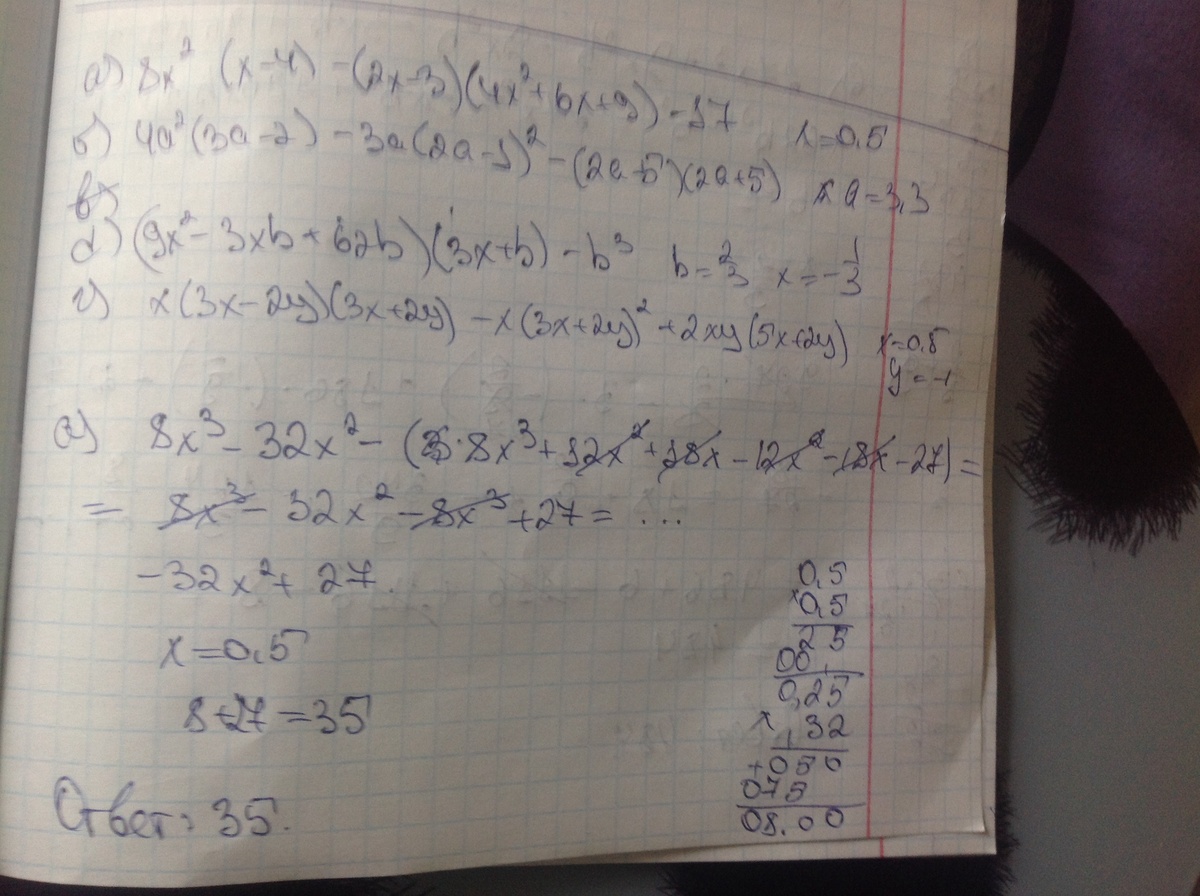 а) 8x² (x-4) -(2x-3)(4x²+6x+9) -17 x=0,5
б) 4a²(3a-2) -3a(2a-1)² -(2a-5)(2a+5) a=3,3
в)
d) (9x²-3xb+b2b)(3x+b) -b³ b=2/3 x=-1/3
г) x(3x-2y)(3x+2y) -x(3x+2y)² +2xy(5x+2y) x=0,5
y=-1
а) 8x³-32x²-(8x³+12x²+18x-12x²-18x-27)=
= 8x³-32x²-8x³+27=...
-32x²+27.
x=0,5
8+27=35
Ответ: 35.
0,5
x0,5
25
00
0,25
x 32
+050
075
08.00